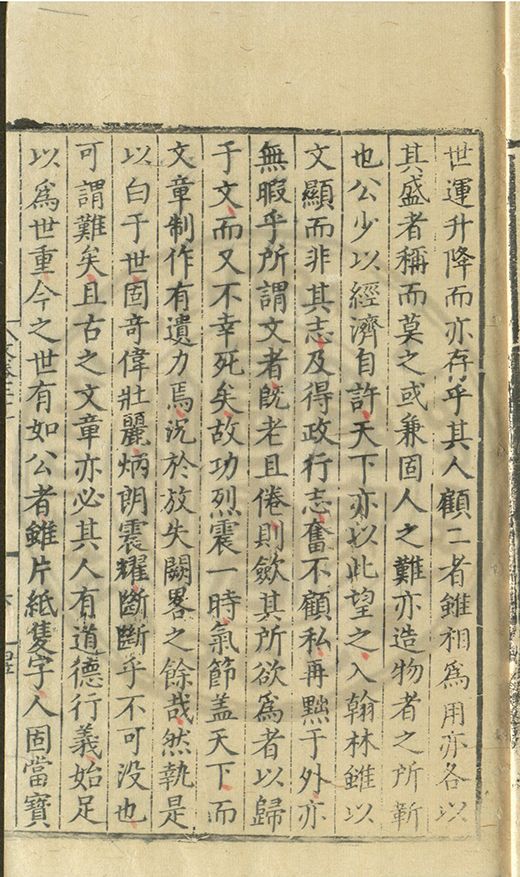 世運升降而亦存乎其人顧二者雖相為用亦各以
其盛者稱而莫之或兼固人之難亦造物者之所靳
也公少以經濟自許天下亦以此望之入翰林雖以
文顯而非其志及得政行志奮不顧私再黜于外亦
無暇乎所謂文者旣老且倦則歛其所欲為者以歸
于文而又不幸死矣故功烈震一時氣節盖天下而
文章制作有遺力焉沉於放失闕畧之餘哉然執是
以白于世固奇偉壯麗炳朗震耀斷斷乎不可没也
可謂難矣且古之文章亦必其人有道德行義始足
以爲世重今之世有如公者雖片紙隻字人固當寶